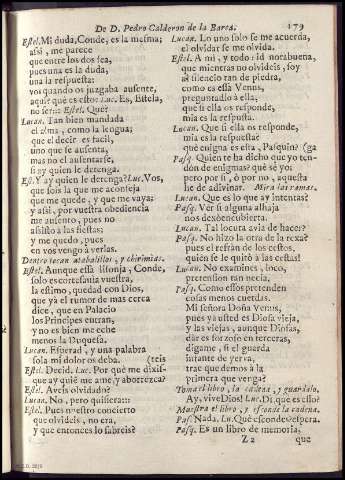 De D. Pedro Calderon de la Barca. 179
Estel. Mi duda, Conde, es la mesma;
assi, me parece
que entre los dos sea,
pues una es la duda,
una la respuesta:
vos quando os juzgaba ausente,
aqui? què es esto? Luc. Es, Estela,
no ser::: Estel. Què?
Lucan. Tan bien mandada
el alma, como la lengua;
que el decir es facil,
uno que se ausenta,
mas no el ausentarse,
si ay quien le detenga.
Est. Y ay quien le detenga? Luc. Vos,
que sois la que me aconseja
que me quede, y que me vaya;
y assi, por vuestra obediencia
me ausento, pues no
assisto à las fiestas;
y me quedo, pues
en vos vengo à verlas.
Dentro tocan atabalillos, y chirimias.
Estel. Aunque essa lisonja, Conde,
solo es cortesanìa vuestra,
la estimo, quedad con Dios,
que yà el rumor de mas cerca
dice, que en Palacio
los Principes entran,
y no es bien me eche
menos la Duquesa.
Lucan. Esperad, y una palabra
sola mi dolor os deba. (teis
Estel. Decid. Luc. Por què me dixis-
que ay quiè me ame, y aborrezca?
Estel. Aveis olvidado?
Lucan. No, pero quisiera:::
Estel. Pues nuestro concierto
que olvideis, no era,
y que entonces lo sabreis?
Lucan. Lo uno solo se me acuerda,
el olvidar se me olvida.
Estel. A mi, y todo: id norabuena,
que mientras no olvideis, soy
al silencio tan de piedra,
como es essa Venus,
preguntadlo à ella,
que si ella os responde,
mia es la respuesta.
Lucan. Que si ella os responde,
mia es la respuesta?
què enigma es esta, Pasquin? (ga
Pasq. Quien te ha dicho que yo ten-
dòn de enigmas? què sè yo;
pero por si, ò por no, aquesta
he de adivinar. Mira las ramas.
Lucan. Que es lo que ay intentas?
Pasq. Vèr si alguna alhaja
nos desencubierta.
Lucan. Tal locura avia de hacer?
Pasq. No hizo la otra de la rexa?
pues el refràn de los cestos,
quièn se le quitò à las cestas?
Lucan. No examines, loco,
pretension tan necia.
Pasq. Como essos pretenden
cosas menos cuerdas.
Mi señora Doña Venus,
pues ya usted es Diosa vieja,
y las viejas, aunque Diosas,
dàr es forzoso en terceras,
digame, si el guarda
infante de yerva,
trae que demos à la
primera que venga?
Toma el libro, la cadena, y guardalo.
Ay, vive Dios! Luc. Dì, que es esso?
Muestra el libro, y esconde la cadena.
Pas. Nada. Lu. Què escondes? espera.
Pasq. Es un libro de memoria,
Z 2 que